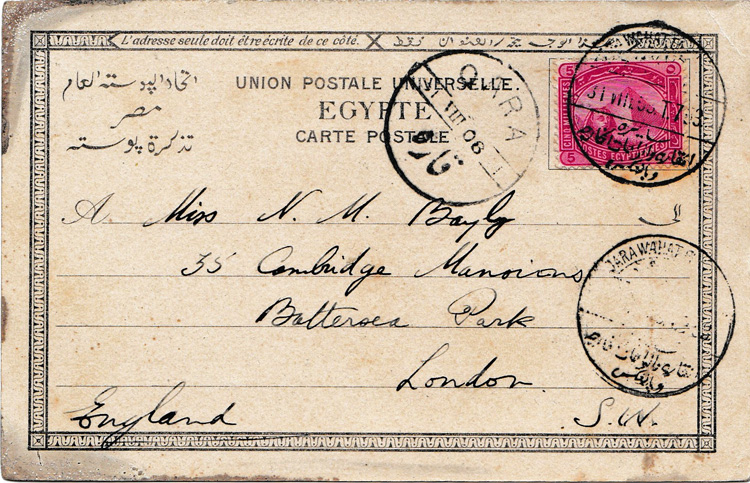 L'adresse seule doit être écrite de ce côté.
فقط
اتحاد البوسته العام
UNION POSTALE UNIVERSELLE.
مصر
EGYPTE
تذكرة بوسته
CARTE POSTALE
QURA
VIII 06
قاره
5
POSTES EGYPTIENNES
5
31 VIII 06. T.73
A Miss N. M. Bayly
35 Cambridge Mansions
Battersea Park
London
England S.W.
JARAWAHAT